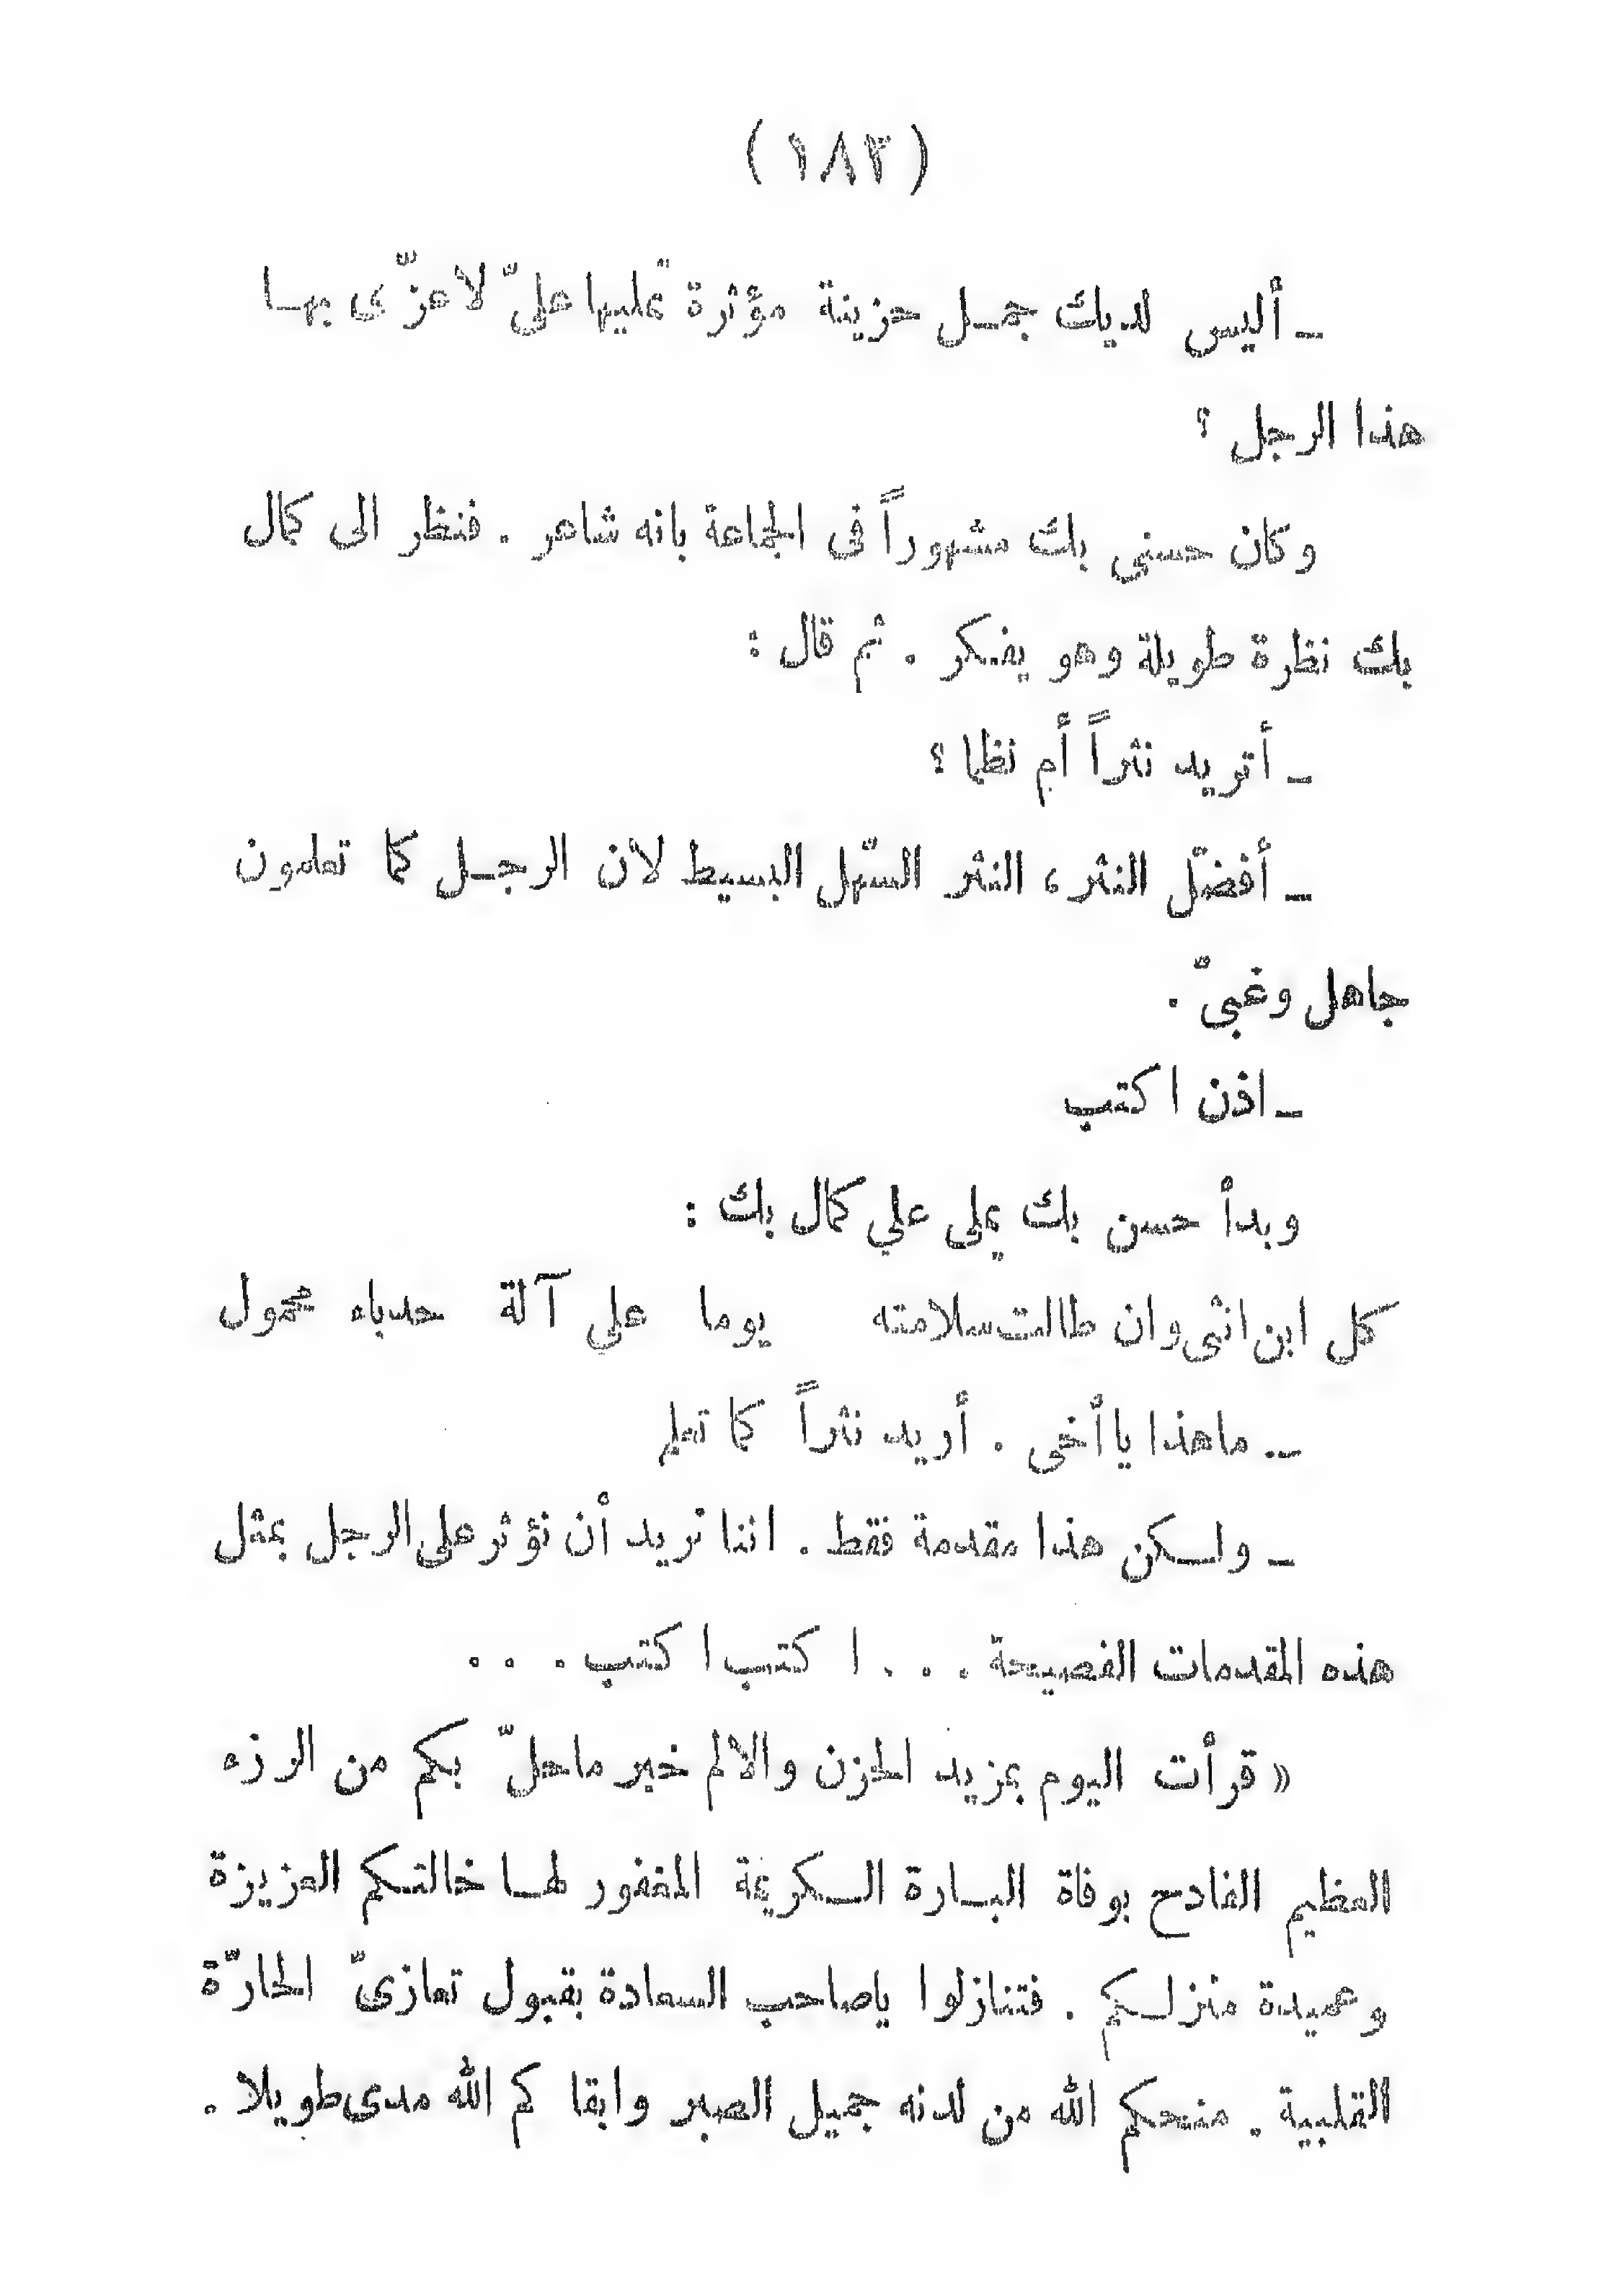 (١٨٣)
ـ أليس لديك جمل حزينة مؤثرة تمليها علىّ لاعزّى بها
هذا الرجل ؟
وكان حسنى بك مشهوراً فى الجماعة بانه شاعر . فنظر الى كمال
بك نظرة طويلة وهو يفكر . ثم قال :
ـ أتريد نثراً أم نظما ؟
ـ أفضّل النثر ، النثر السّهل البسيط لأن الرجل كما تعلمون
جاهل وغبىّ .
ـ اذن اكتب
وبدأ حسن بك يملى علي كمال بك :
كل ابن انثى وان طالت سلامته يوما علي آلة حدباء محمول
ـ ماهذا ياأخى . أريد نثراً كما تعلم
ـ ولكن هذا مقدمة فقط . اننا نريد أن نؤثر على الرجل بمثل
هذه المقدمات الفصيحة . . . اكتب اكتب . . .
« قرأت اليوم بمزيد الحزن والالم خبر ماحلّ بكم من الرزء
العظيم الفادح بوفاة البارة الكريمة المغفور لها خالتكم العزيزة
وعميدة منزلكم . فتنازلوا ياصاحب السعادة بقبول تعازىّ الحارّة
القلبية . منحكم الله من لدنه جميل الصبر وابقاكم الله مدى طويلا .